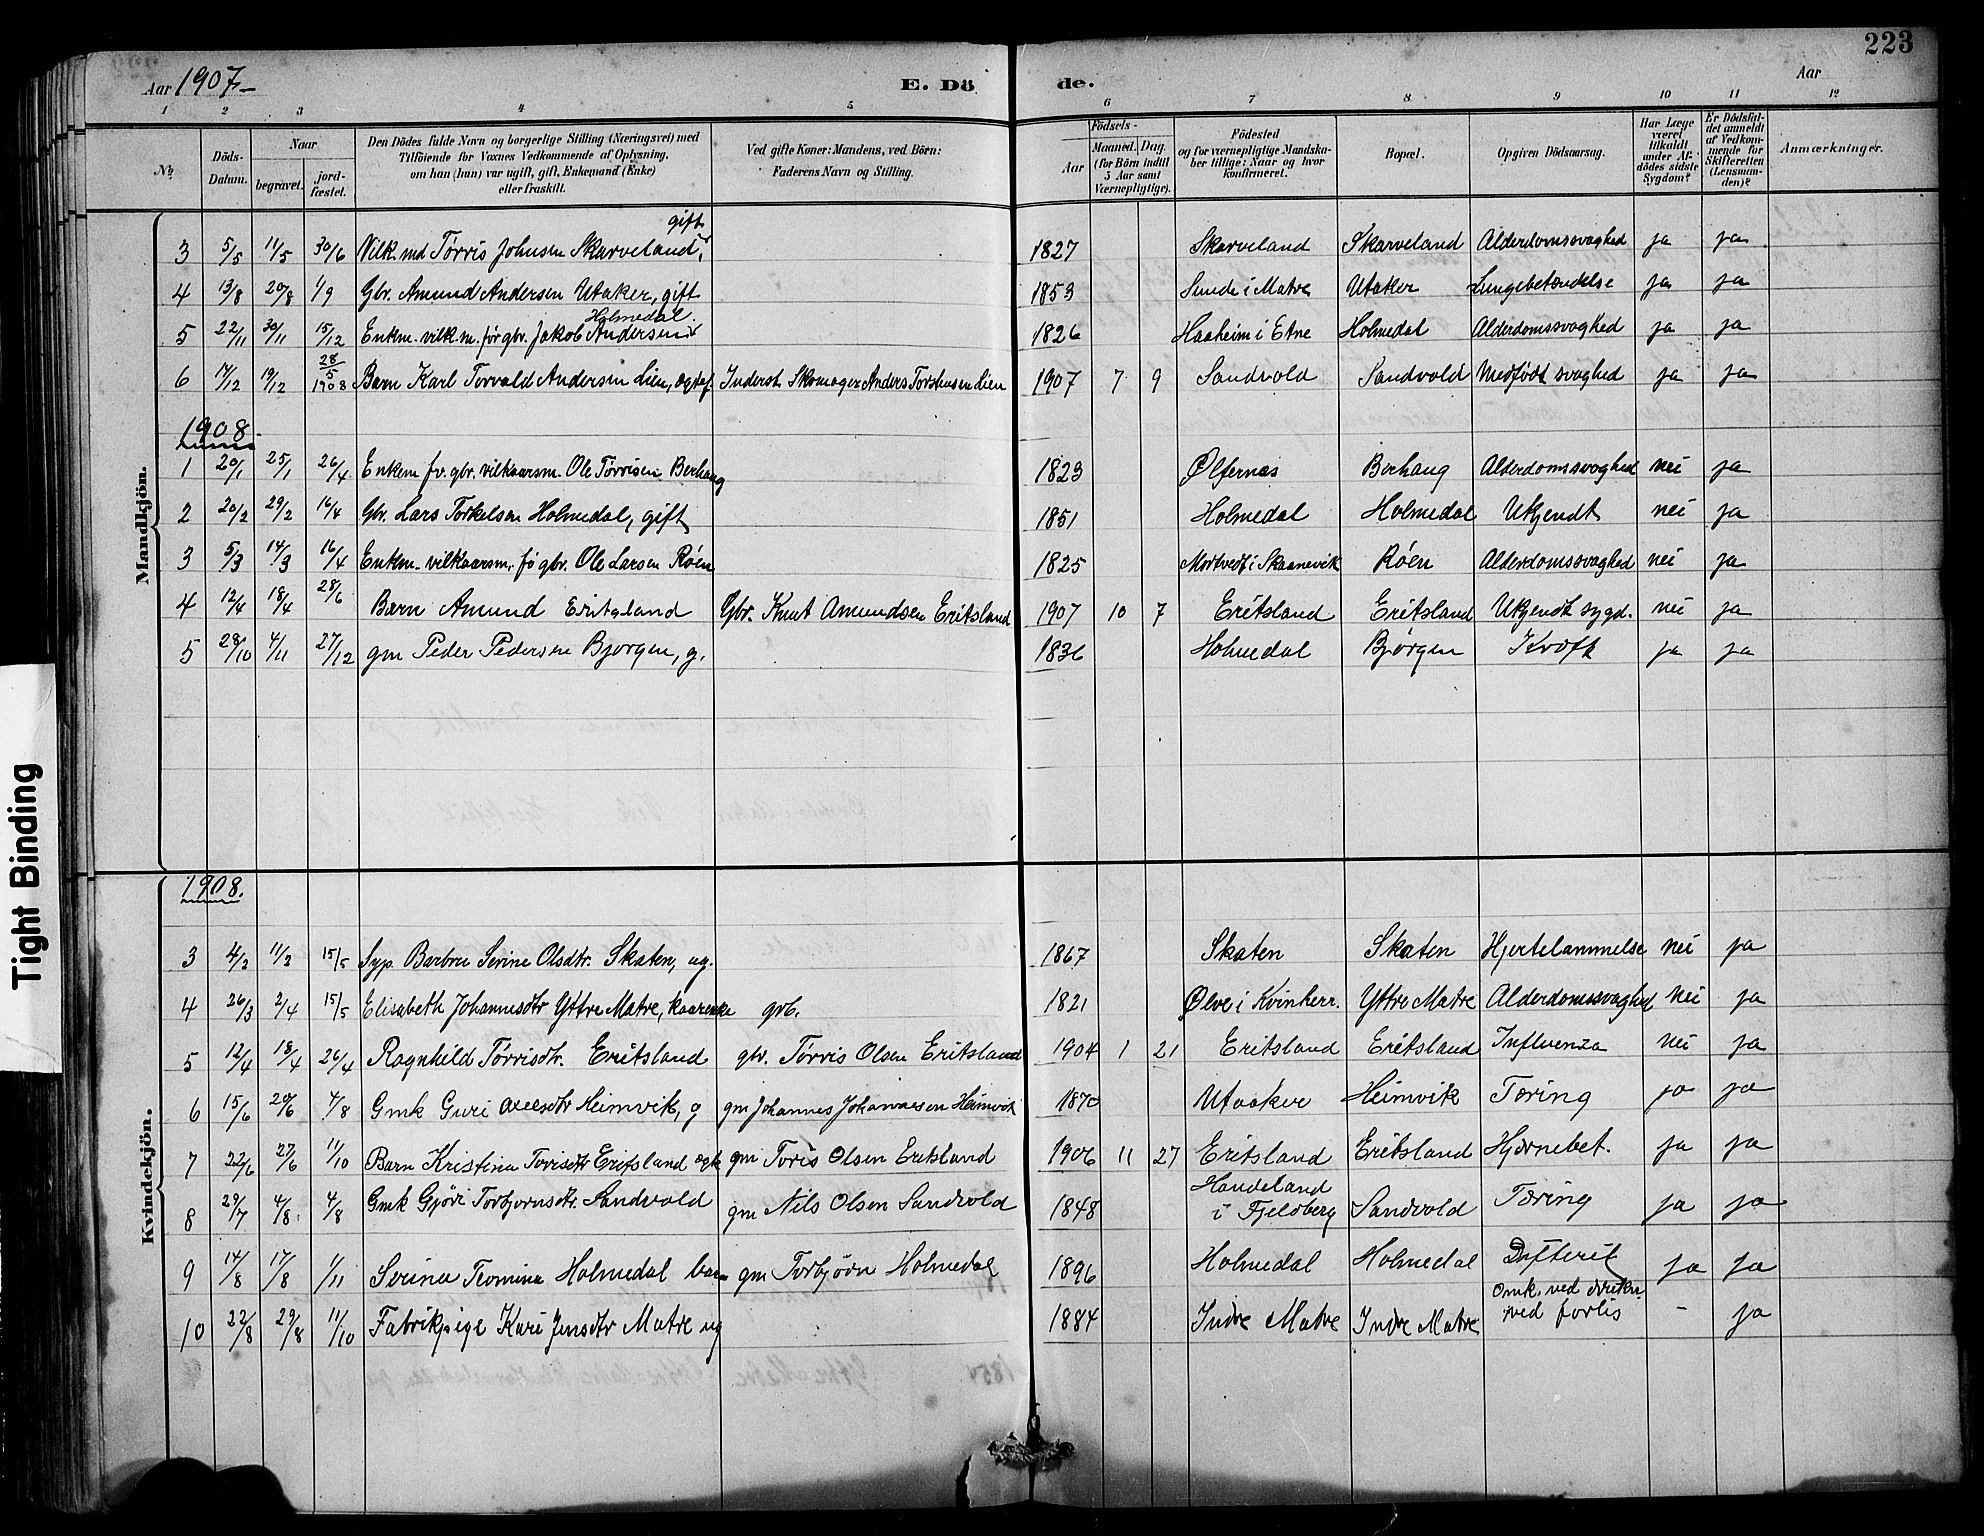 223
Aar 1907.
E. Dö de.
Aar
1 2 3 4 5 6 7 8 9 10 11 12
No.
Döds-Datum.
Naar
begravet. jordfæstet.
Den Dödes fulde Navn og borgerlige Stilling (Næringsvei) med
Tilföiende for Voxnes Vedkommende af Oplysning,
om han (hun) var ugift, gift, Enkemand (Enke)
eller fraskilt.
Ved gifte Koner: Mandens, ved Börn:
Faderens Navn og Stilling.
Födsels-
Aar
Maaned. Dag.
(for Börn indtil
5 Aar samt
Værnepligtige).
Födested
og for værnepligtige Mandskaber tillige: Naar og hvor
konfirmeret.
Bopæl.
Opgiven Dödsaarsag.
Har Læge
været
tilkaldt
under Afdödes sidste
Sygdom?
Er Dödsfaldet anmeldt
af Vedkommende for
Skifteretten
(Lensmanden)?
Anmærkninger.
Mandkjön.
3 5/5 11/5 30/6 Vilk.md Tørris Johnsen Skarveland, gift 1827 Skarveland Skarveland Alderdomssvaghed ja ja
4 13/8 20/8 1/9 Gbr. Amund Andersen Utaker, gift 1853 Sunde i Matre Utaker Lungebetændelse ja ja
5 22/11 30/11 15/12 Enkem. vilk.m. før gbr. Jakob Andersen Holmedal. 1826 Haaheim i Etne Holmedal Alderdomssvaghed ja ja
6 17/12 19/12 28/5 1908 Barn Karl Torvald Andersen Lien, ægtef. Inderst Skomager Anders Torstensen Lien 1907 7 9 Sandvold Sandvold Medfødt svaghed ja ja
1908.
1 20/1 25/1 26/4 Enkem fv. gbr. vilkaarsm. Ole Tørrisen Berhaug 1823 Ølfernes Berhaug Alderdomssvaghed nei ja
2 20/2 29/2 16/4 Gbr. Lars Torkelsen Holmedal, gift 1851 Holmedal Holmedal Ukjendt nei ja
3 5/3 14/3 16/4 Enkem. vilkaarsm. fø gbr. Ole Larsen Røen 1825 Mortvedt i Skaanevik Røen Alderdomssvaghed nei ja
4 12/4 18/4 28/6 Barn Amund Eritsland Gbr. Knut Amundsen Eritsland 1907 10 7 Eritsland Eritsland Ukjendt sygd. nei ja
5 28/10 4/11 27/12 gm Peder Pedersen Bjørgen, g. 1836 Holmedal Bjørgen Kræft ja ja
Kvindekjön.
1908.
3 4/2 11/2 15/5 Syp. Barbra Serine Olsdtr. Skaten, ug. 1867 Skaten Skaten Hjertelammelse nei ja
4 26/3 2/4 15/5 Elisabeth Johannesdtr Yttre Matre, kaarenke grb. 1821 Ølve i Kvinherr. Yttre Matre Alderdomssvaghed nei ja
5 12/4 18/4 26/4 Ragnhild Tørrisdtr. Eritsland gbr. Tørris Olsen Eritsland 1904 1 21 Eritsland Eritsland Influenza nei ja
6 15/6 20/6 4/8 Gmk Guri Axelsdtr Heimvik, g gm Johannes Johannesen Heimvik 1870 Utaaker Heimvik Tæring ja ja
7 22/6 27/6 11/10 Barn Kristina Torisdtr Eritsland ægte gm Toris Olsen Eritsland 1906 11 27 Eritsland Eritsland Hjernebet. ja ja
8 29/7 4/8 4/8 Gmk Gjøri Torbjørnsdtr. Sandvold gm Nils Olsen Sandvold 1848 Handeland i Fjeldberg Sandvold Tæring ja ja
9 14/8 17/8 1/11 Serina Teomina Holmedal barn gm Torbjørn Holmedal 1896 Holmedal Holmedal Difterit ja ja
10 22/8 29/8 11/10 Fabrikpige Kari Jensdtr Matre ug 1884 Indre Matre Indre Matre Omk. ved drukn. ved forlis - ja
Tight Binding